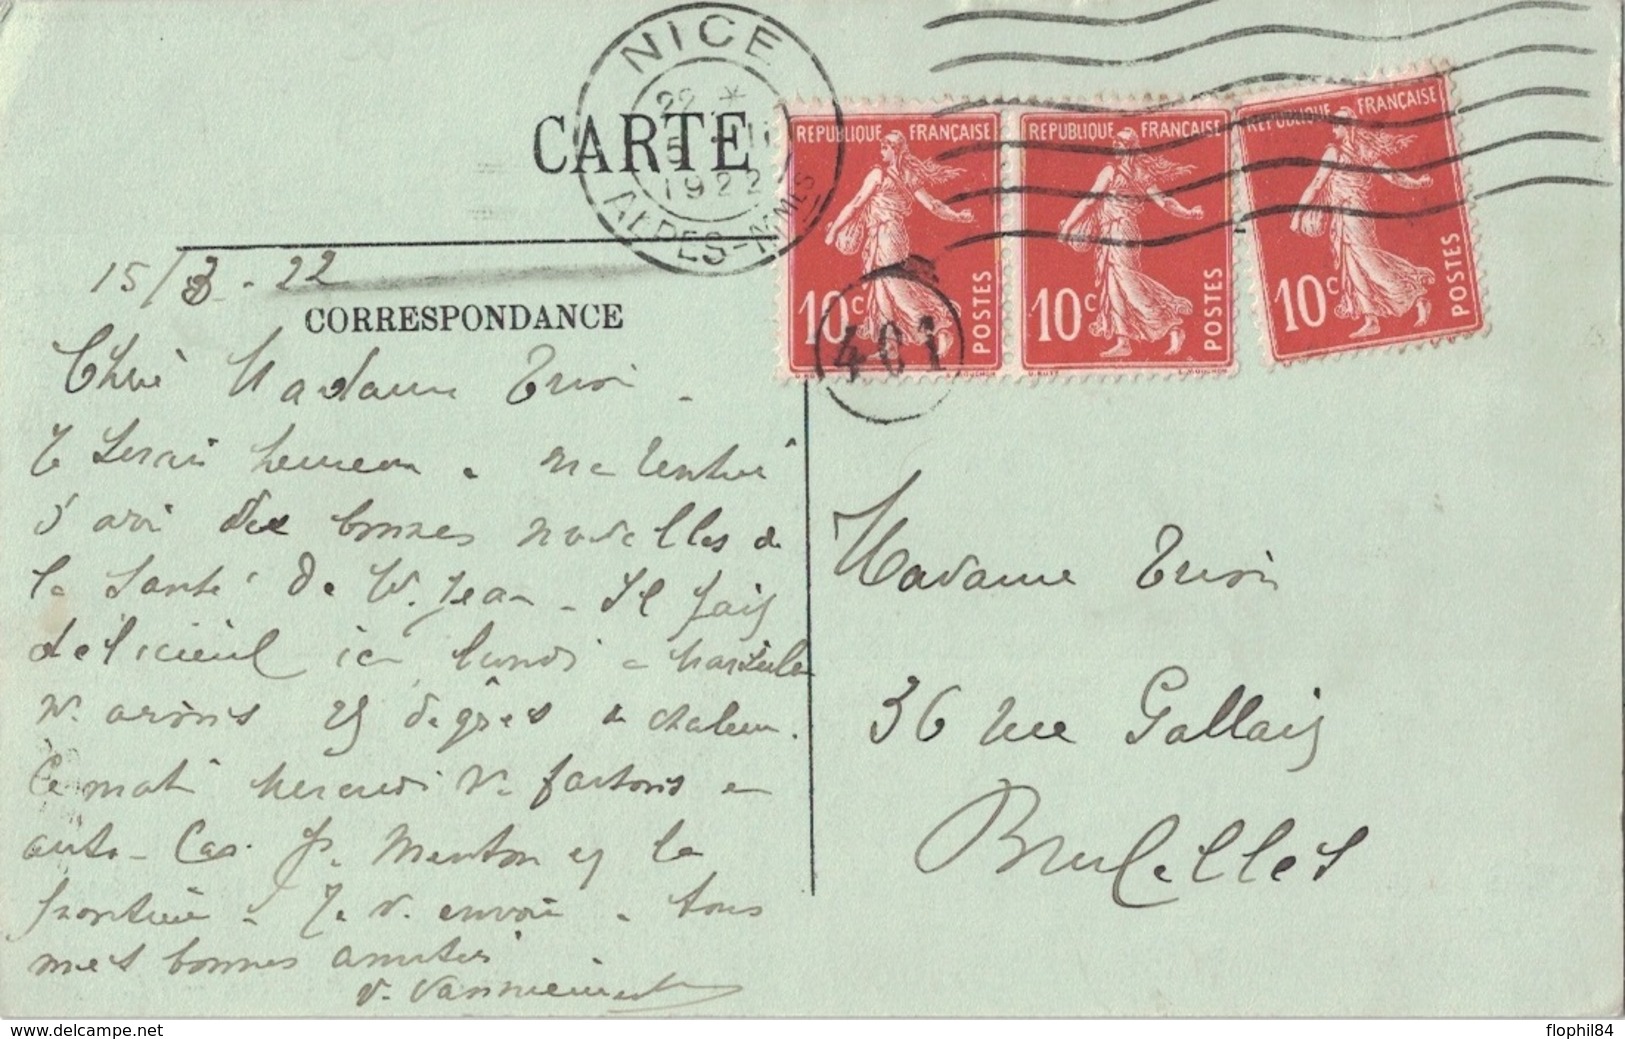 NICE
22 *
15 - III
1922
ALPES-MMES
CARTE
REPUBLIQUE FRANÇAISE
10c
POSTES
REPUBLIQUE FRANÇAISE
10c
POSTES
REPUBLIQUE FRANÇAISE
10c
POSTES
401
15/3 - 22
CORRESPONDANCE
Madame
Je serais heureux à ma rentrée
d'avoir des bonnes nouvelles de
la santé de M. Jean - Il fait
délicieux ici lundi à Marseille
n. avions 25 degrés de chaleur.
Ce matin mercredi n. partons en
auto-car pr. Menton et la
frontière - Je v. envoie tous
mes bonnes amitiés
Madame
36 rue Gallait
Bruxelles
www.delcampe.net
flophil84